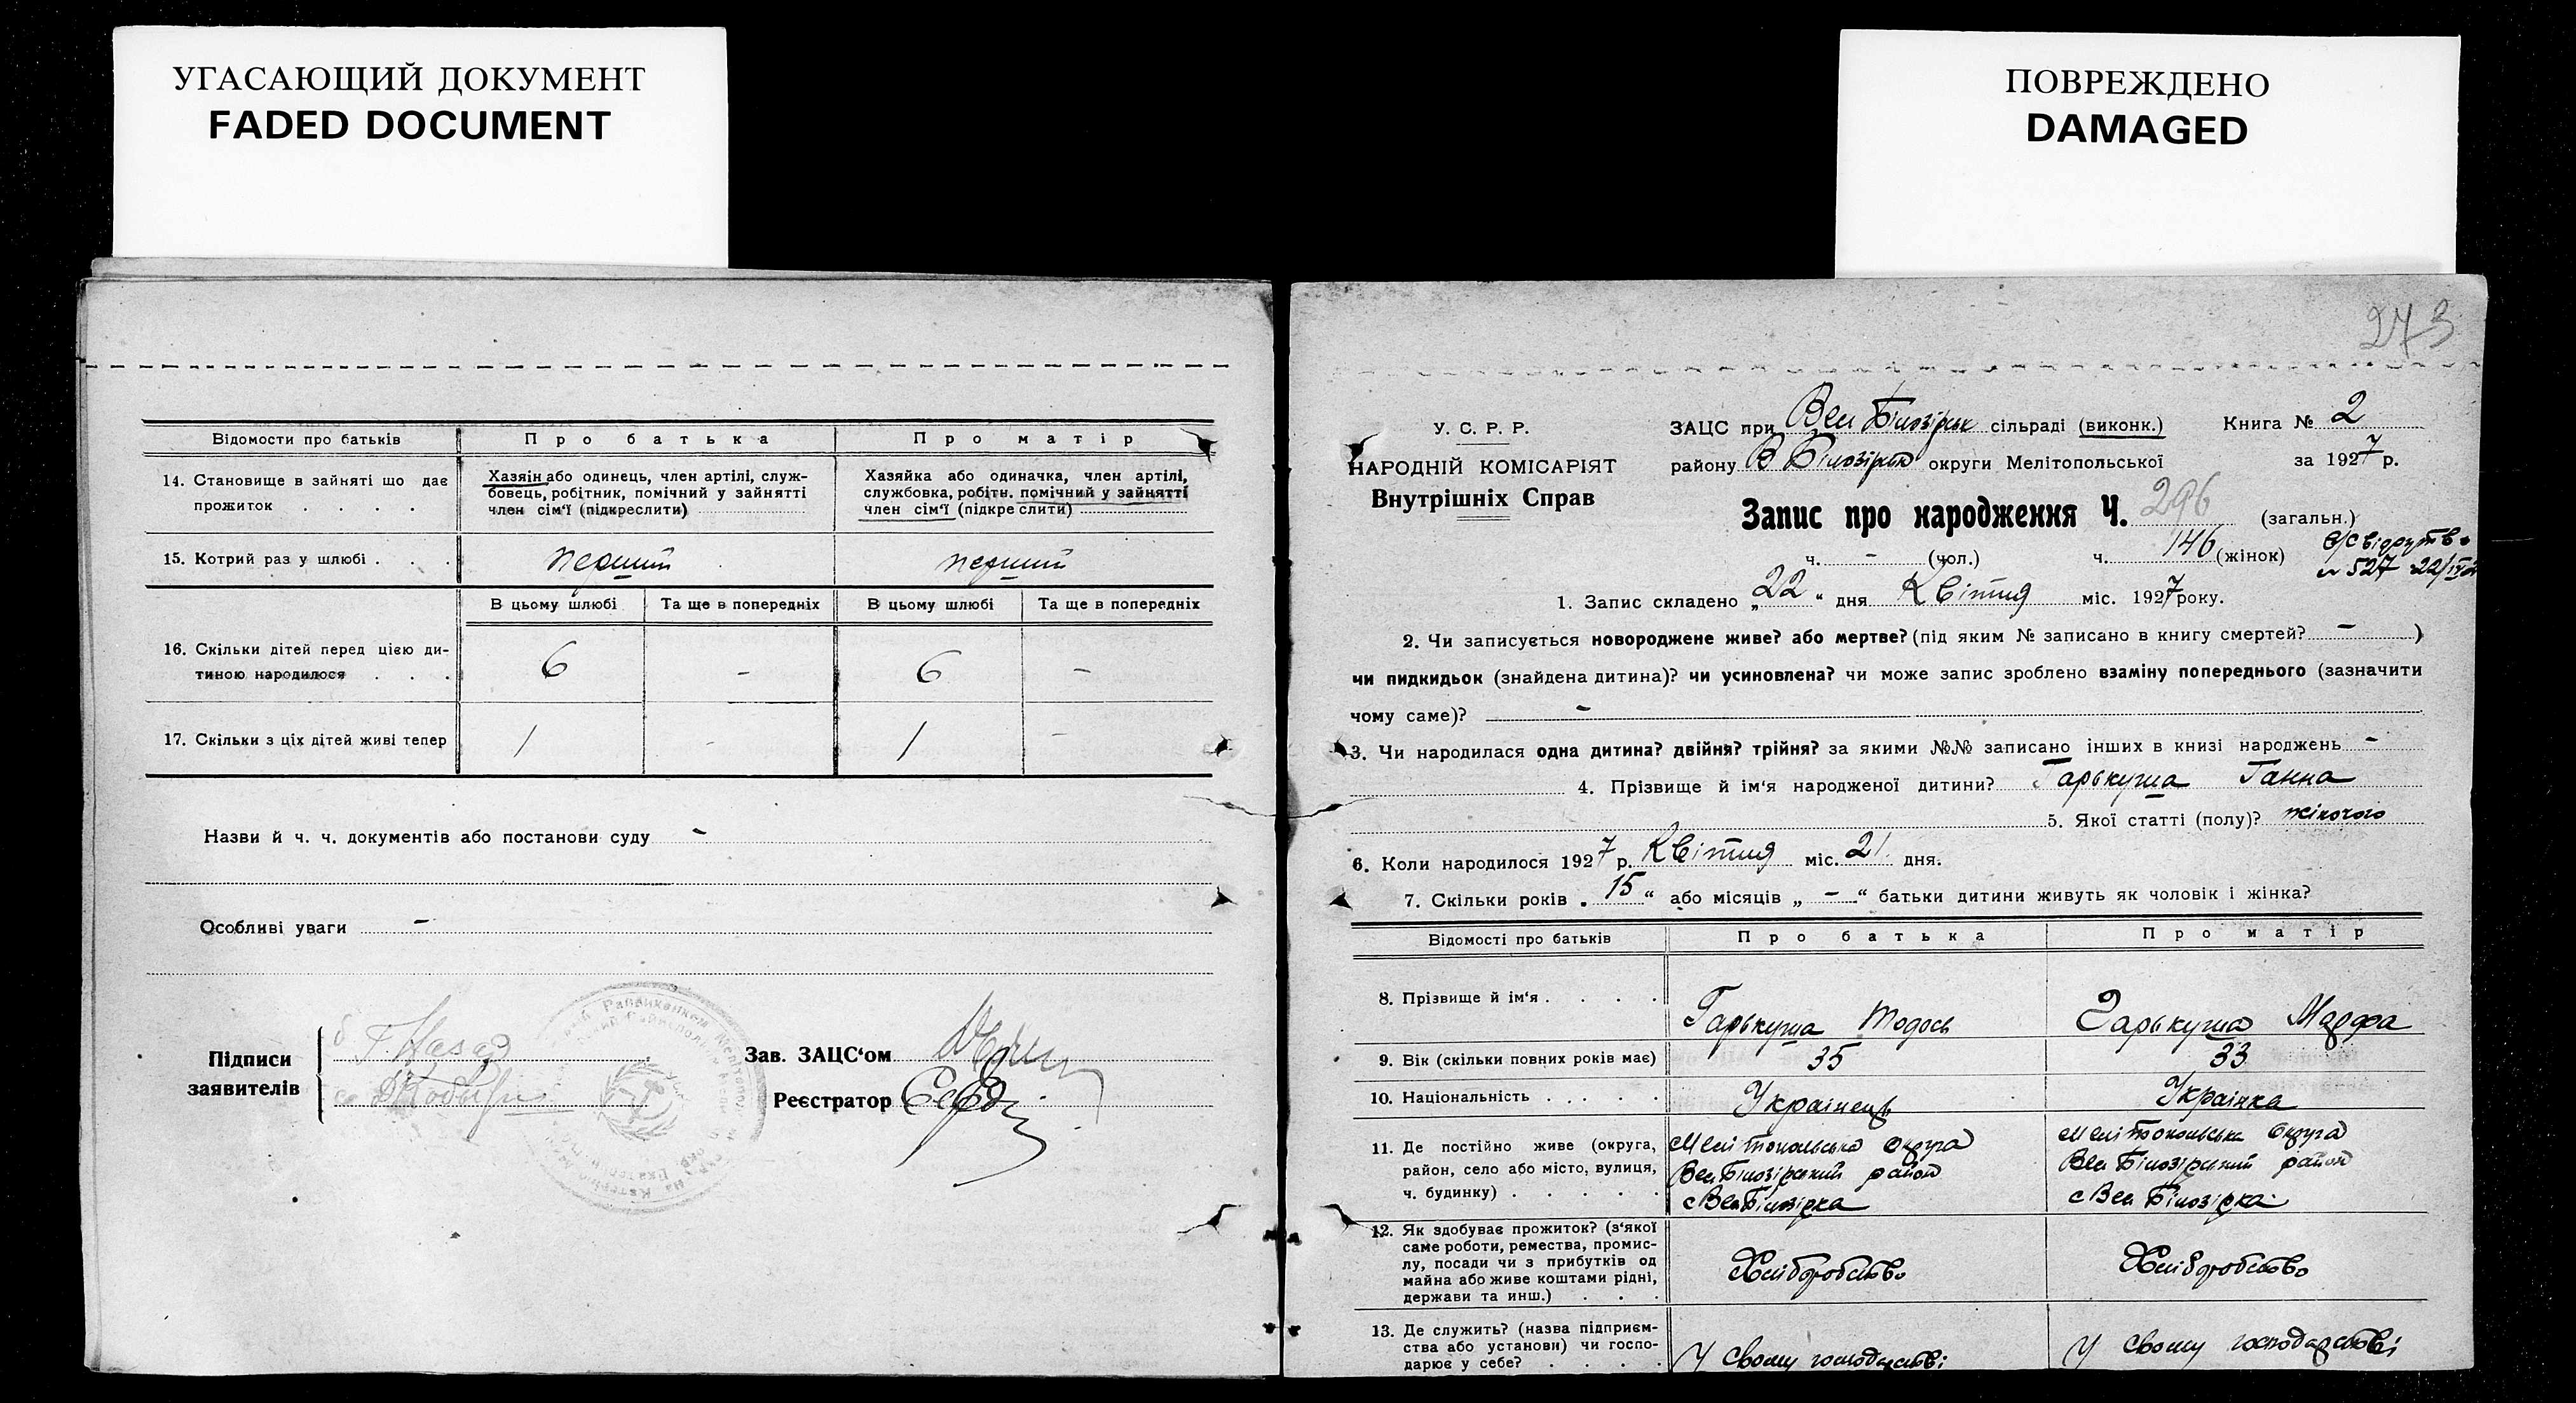 УГАСАЮЩИЙ ДОКУМЕНТ
FADED DOCUMENT
ПОВРЕЖДЕНО
DAMAGED
Відомости про батьків Про батька Про матір
14. Становище в зайняті що дає прожиток . . . .
Хазяін або одинець, член артілі, служ-
бовець, робітник, помічний у зайнятті
член сім'ї (підкреслити)
Хазяйка або одиначка, член артілі,
службовка, робітн. помічний у зайнятті
член сім'ї (підкреслити)
15. Котрий раз у шлюбі . . . перший перший
В цьому шлюбі Та ще в попередніх В цьому шлюбі Та ще в попередніх
16. Скільки дітей перед цією ди-
тиною народилося . . . 6 - 6 -
17. Скільки з ціх дітей живі тепер 1 - 1 -
Назви й ч. ч. документів або постанови суду -
Особливі уваги -
Підписи
заявителів
Зав. ЗАЦС'ом
Реєстратор
273
У. С. Р. Р.
НАРОДНІЙ КОМІСАРІЯТ
Внутрішніх Справ
ЗАЦС при Вел Білозірськ сільраді (виконк.) Книга № 2
району В Білозірськ округи Мелітопольської за 1927 р.
Запис про народження Ч. 296 (загальн.)
ч. - (чол.) ч. 146 (жінок)
№ 527 22/IV
1. Запис складено „22" дня Квітня міс. 1927 року.
2. Чи записується новороджене живе? або мертве? (під яким № записано в книгу смертей? - )
чи пидкидьок (знайдена дитина)? чи усиновлена? чи може запис зроблено взаміну попереднього (зазначити
чому саме)? -
3. Чи народилася одна дитина? двійня? трійня? за якими №№ записано інших в книзі народжень -
4. Прізвище й ім'я народженої дитини? Гарькуша Ганна
5. Якої статті (полу)? жіночого
6. Коли народилося 1927 р. Квітня міс. 21 дня.
7. Скільки років „15" або місяців „-" батьки дитини живуть як чоловік і жінка?
Відомості про батьків Про батька Про матір
8. Прізвище й ім'я . . . . Гарькуша Тодось Гарькуша Марфа
9. Вік (скільки повних років має) 35 33
10. Національність . . . . Українець Українка
11. Де постійно живе (округа,
район, село або місто, вулиця,
ч. будинку) . . . . .
Мелітопольська округа
Вел Білозірський район
с Вел Білозірка
Мелітопольська округа
Вел Білозірський район
с Вел Білозірка
12. Як здобуває прожиток? (з'якої
саме роботи, ремества, промис-
лу, посади чи з прибутків од
майна або живе коштами рідні,
держави та инш.) . . .
Хліборобство Хліборобство
13. Де служить? (назва підприєм-
ства або установи) чи госпо-
дарює у себе? . . . .
У свому господарстві У свому господарстві